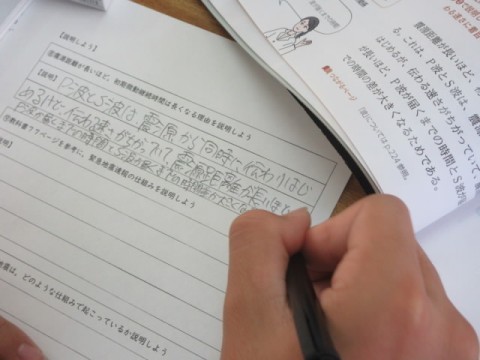 【説明しよう】
①震源距離が長いほど、初期微動継続時間は長くなる理由を説明しよう
【説明】P波とS波は、震源から同時に伝わりはじ
めるけど、伝わる速さがちがっていて、震源距離が長いほど
P波が届くまでの時間と
②教科書77ページを参考に、緊急地震速報の仕組みを説明しよう
【説明】
地震は、どのような仕組みで起こっているか説明しよう
震源距離が長いほど、初
これは、P波とS波は、震
はじめるが、伝わる速さがちがっていて、
が長いほど、P波が届くまでの時間とS波が
での時間の差が大きくなるためである。
224